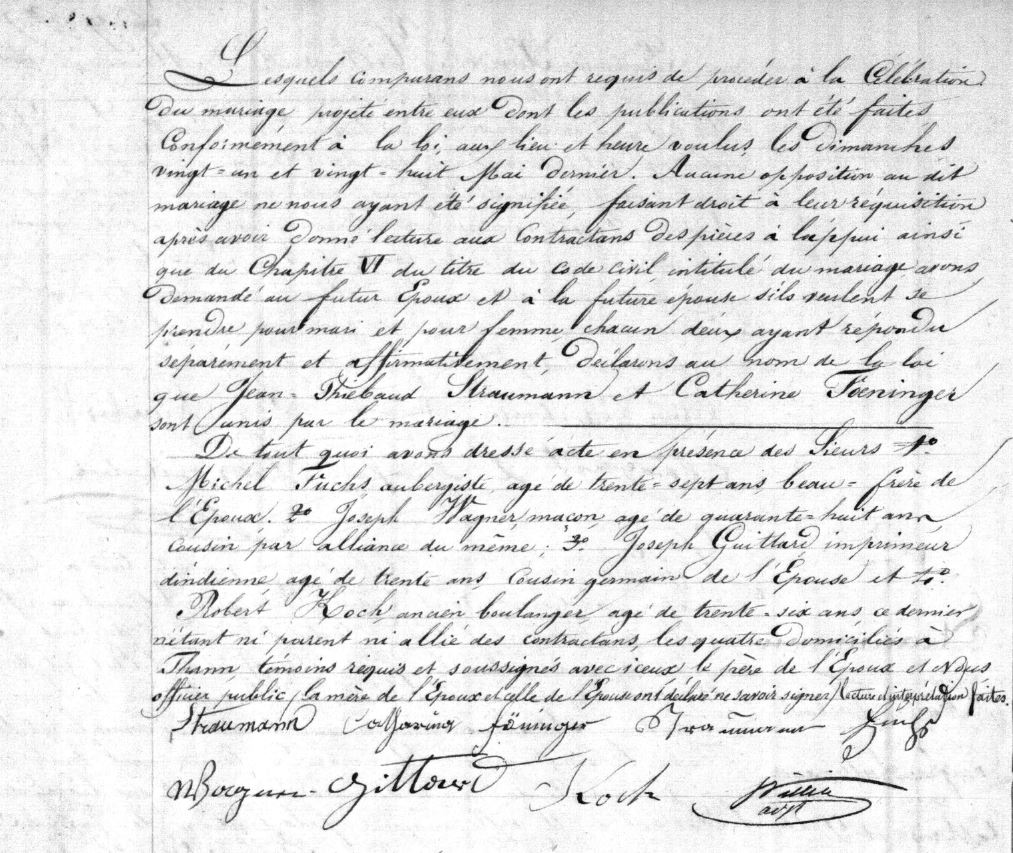 Lesquels comparans nous ont requis de procéder à la Célébration
du mariage projeté entre eux dont les publications ont été faites
Conformément à la loi, aux lieu et heure voulus, les dimanches
vingt=un et vingt=huit Mai dernier. Aucune opposition au dit
mariage ne nous ayant été signifiée, faisant droit à leur réquisition
après avoir donné lecture aux Contractans des pièces à l'appui ainsi
que du Chapitre VI du titre du code civil intitulé du mariage avons
demandé au futur Epoux et à la future épouse s'ils veulent se
prendre pour mari et pour femme, chacun d'eux ayant répondu
séparément et affirmativement, déclarons au nom de la loi
que Jean-Thiébaud Straumann et Catherine Föeninger
sont unis par le mariage.
De tout quoi avons dressé acte en présence des Sieurs 1o.
Michel Fuchs aubergiste, agé de trente=sept ans beau=frère de
l'Epoux. 2o Joseph Wagner maçon, agé de quarante=huit ans
cousin par alliance du même; 3o. Joseph Guittard imprimeur
d'indienne agé de trente ans Cousin germain de l'Epouse et 4o.
Robert Koch, ancien boulanger, agé de trente-six ans ce dernier
n'étant ni parent ni allié des contractans, les quatre domiciliés à
Thann, témoins requis et soussignés avec iceux le père de l'Epoux et Nous
officier public, la mère de l'Epoux et celle de l'Epouse ont déclaré ne savoir signer, lecture et interprétation faites.
Straumann Catharina Föninger Straumann Fuchs
Wagner Gittard Koch
adjt